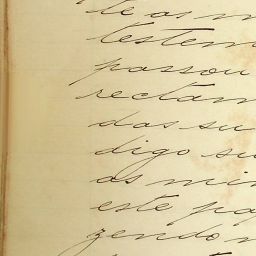 te as m
testem
passou
rectam
das su
digo su
as min
este pa
zendo n